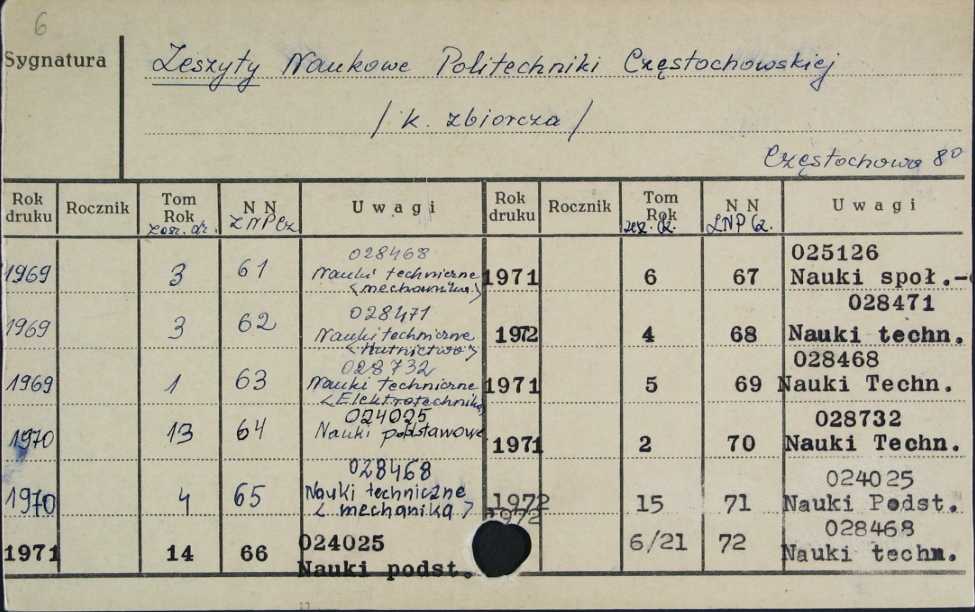 6
Sygnatura
Zeszyty Naukowe Politechniki Częstochowskiej
/ k. zbiorcza /
Częstochowa 8º
Rok druku Rocznik Tom Rok zesz. dz. N N ZNPCz U w a g i
1969 3 61 028468 Nauki techniczne
<mechanika>
1969 3 62 028471 Nauki techniczne
<Hutnictwo>
1969 1 63 028732 Nauki techniczne
<Elektrotechnika>
1970 13 64 024025 Nauki podstawowe
1970 4 65 028468 Nauki techniczne
< mechanika >
1971 14 66 024025
Nauki podst.
Rok druku Rocznik Tom Rok zesz. dz. N N ZNPCz. U w a g i
1971 6 67 025126
Nauki społ.-
1972 4 68 028471
Nauki techn.
1971 5 69 028468
Nauki Techn.
1971 2 70 028732
Nauki Techn.
1972 15 71 024025
Nauki Podst.
1972 6/21 72 028468
Nauki techn.